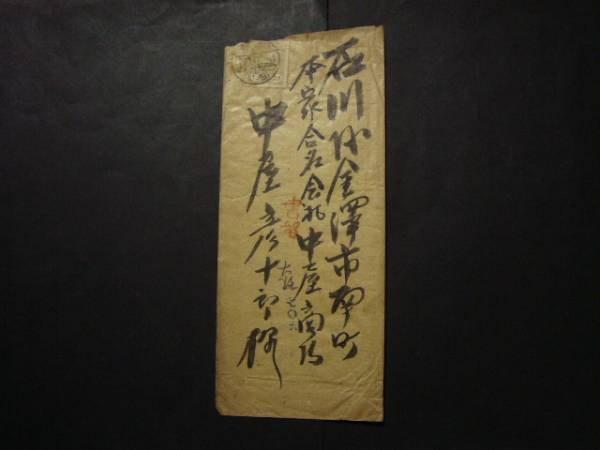 石川縣金澤市南町
本家合名会社中屋商店
中屋彦十郎様